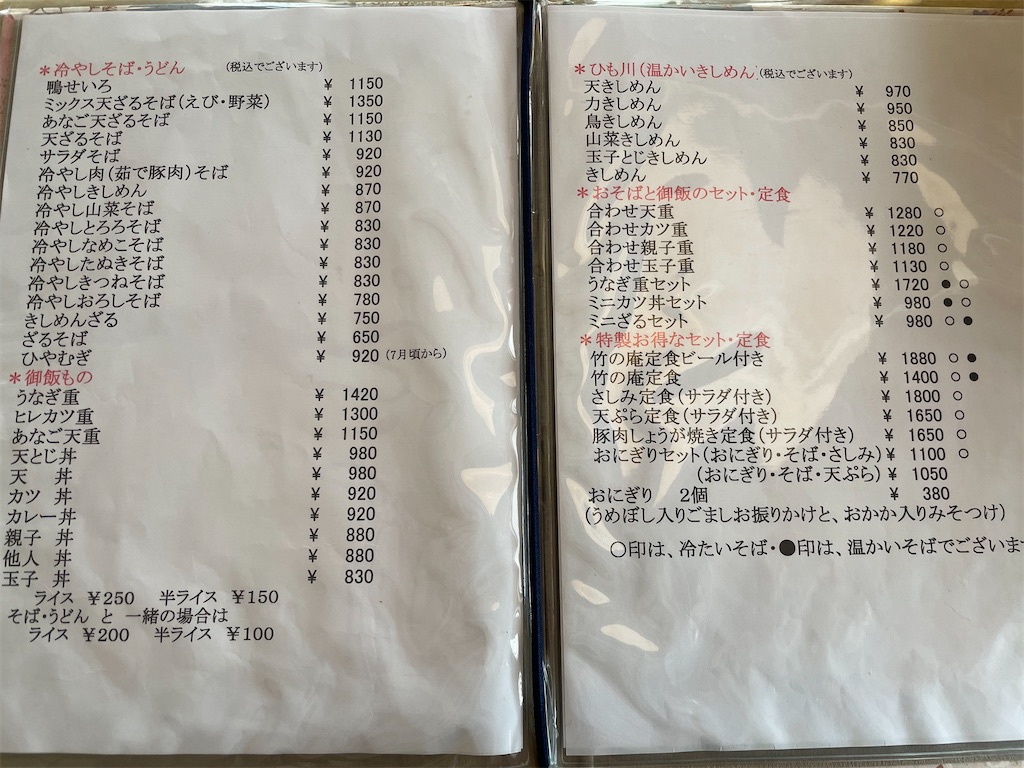 ＊冷やしそば・うどん （税込でございます）
鴨せいろ ￥ 1150
ミックス天ざるそば（えび・野菜） ￥ 1350
あなご天ざるそば ￥ 1150
天ざるそば ￥ 1130
サラダそば ￥ 920
冷やし肉（茹で豚肉）そば ￥ 920
冷やしきしめん ￥ 870
冷やし山菜そば ￥ 870
冷やしとろろそば ￥ 830
冷やしなめこそば ￥ 830
冷やしたぬきそば ￥ 830
冷やしきつねそば ￥ 830
冷やしおろしそば ￥ 780
きしめんざる ￥ 750
ざるそば ￥ 650
ひやむぎ ￥ 920（7月頃から）
＊御飯もの
うなぎ重 ￥ 1420
ヒレカツ重 ￥ 1300
あなご天重 ￥ 1150
天とじ丼 ￥ 980
天　丼 ￥ 980
カツ　丼 ￥ 920
カレー丼 ￥ 920
親子　丼 ￥ 880
他人　丼 ￥ 880
玉子　丼 ￥ 830
ライス ￥250　半ライス ￥150
そば・うどん と 一緒の場合は
ライス ￥200　半ライス ￥100
＊ひも川（温かいきしめん）（税込でございます）
天きしめん ￥ 970
力きしめん ￥ 950
鳥きしめん ￥ 850
山菜きしめん ￥ 830
玉子とじきしめん ￥ 830
きしめん ￥ 770
＊おそばと御飯のセット・定食
合わせ天重 ￥ 1280 ○
合わせカツ重 ￥ 1220 ○
合わせ親子重 ￥ 1180 ○
合わせ玉子重 ￥ 1130 ○
うなぎ重セット ￥ 1720 ● ○
ミニカツ丼セット ￥ 980 ● ○
ミニざるセット ￥ 980 ○ ●
＊特製お得なセット・定食
竹の庵定食ビール付き ￥ 1880 ○ ●
竹の庵定食 ￥ 1400 ○ ●
さしみ定食（サラダ付き） ￥ 1800 ○
天ぷら定食（サラダ付き） ￥ 1650 ○
豚肉しょうが焼き定食（サラダ付き） ￥ 1650 ○
おにぎりセット（おにぎり・そば・さしみ）￥ 1100 ○
（おにぎり・そば・天ぷら）￥ 1050
おにぎり　2個 ￥ 380
（うめぼし入りごましお振りかけと、おかか入りみそつけ）
○印は、冷たいそば・●印は、温かいそばでございま